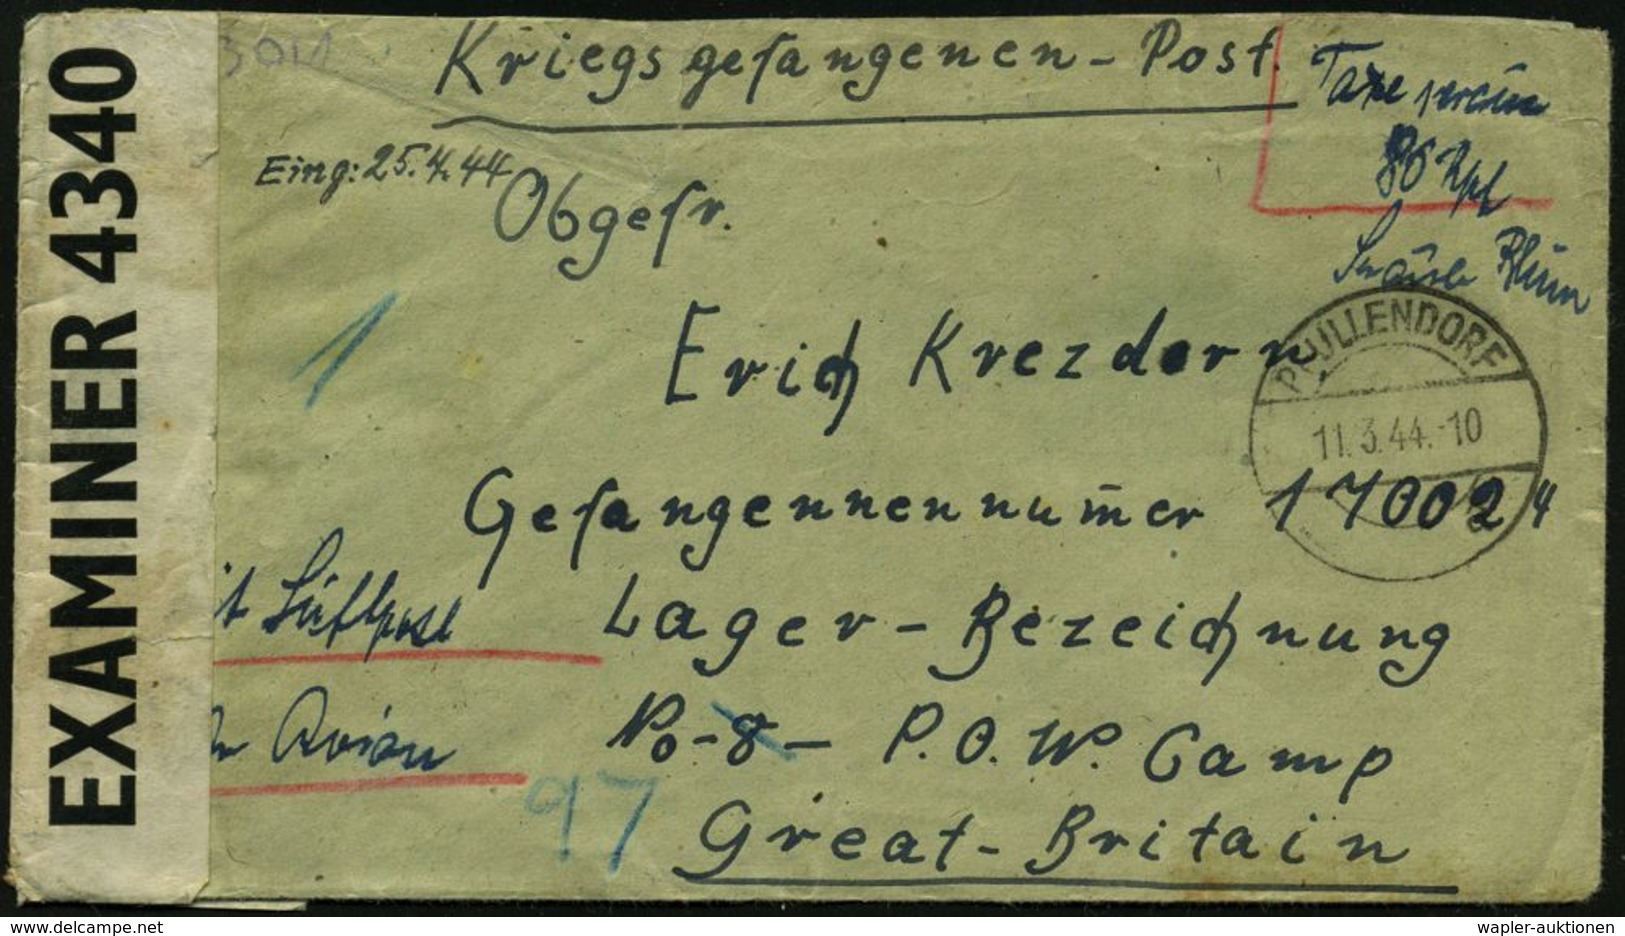 EXAMINER 4340
Kriegsgefangenen-Post.
Taxe percue
80 Rpf
Eing: 25.4.44
Obgefr.
1
Erich Krezdorn
PFULLENDORF
11.3.44.-10
Gefangennennum̄er 170024
it Luftpost
Lager-Bezeichnung
Avion
No-8- P.O.W. Camp
97
Great-Britain
wapler-auktionen